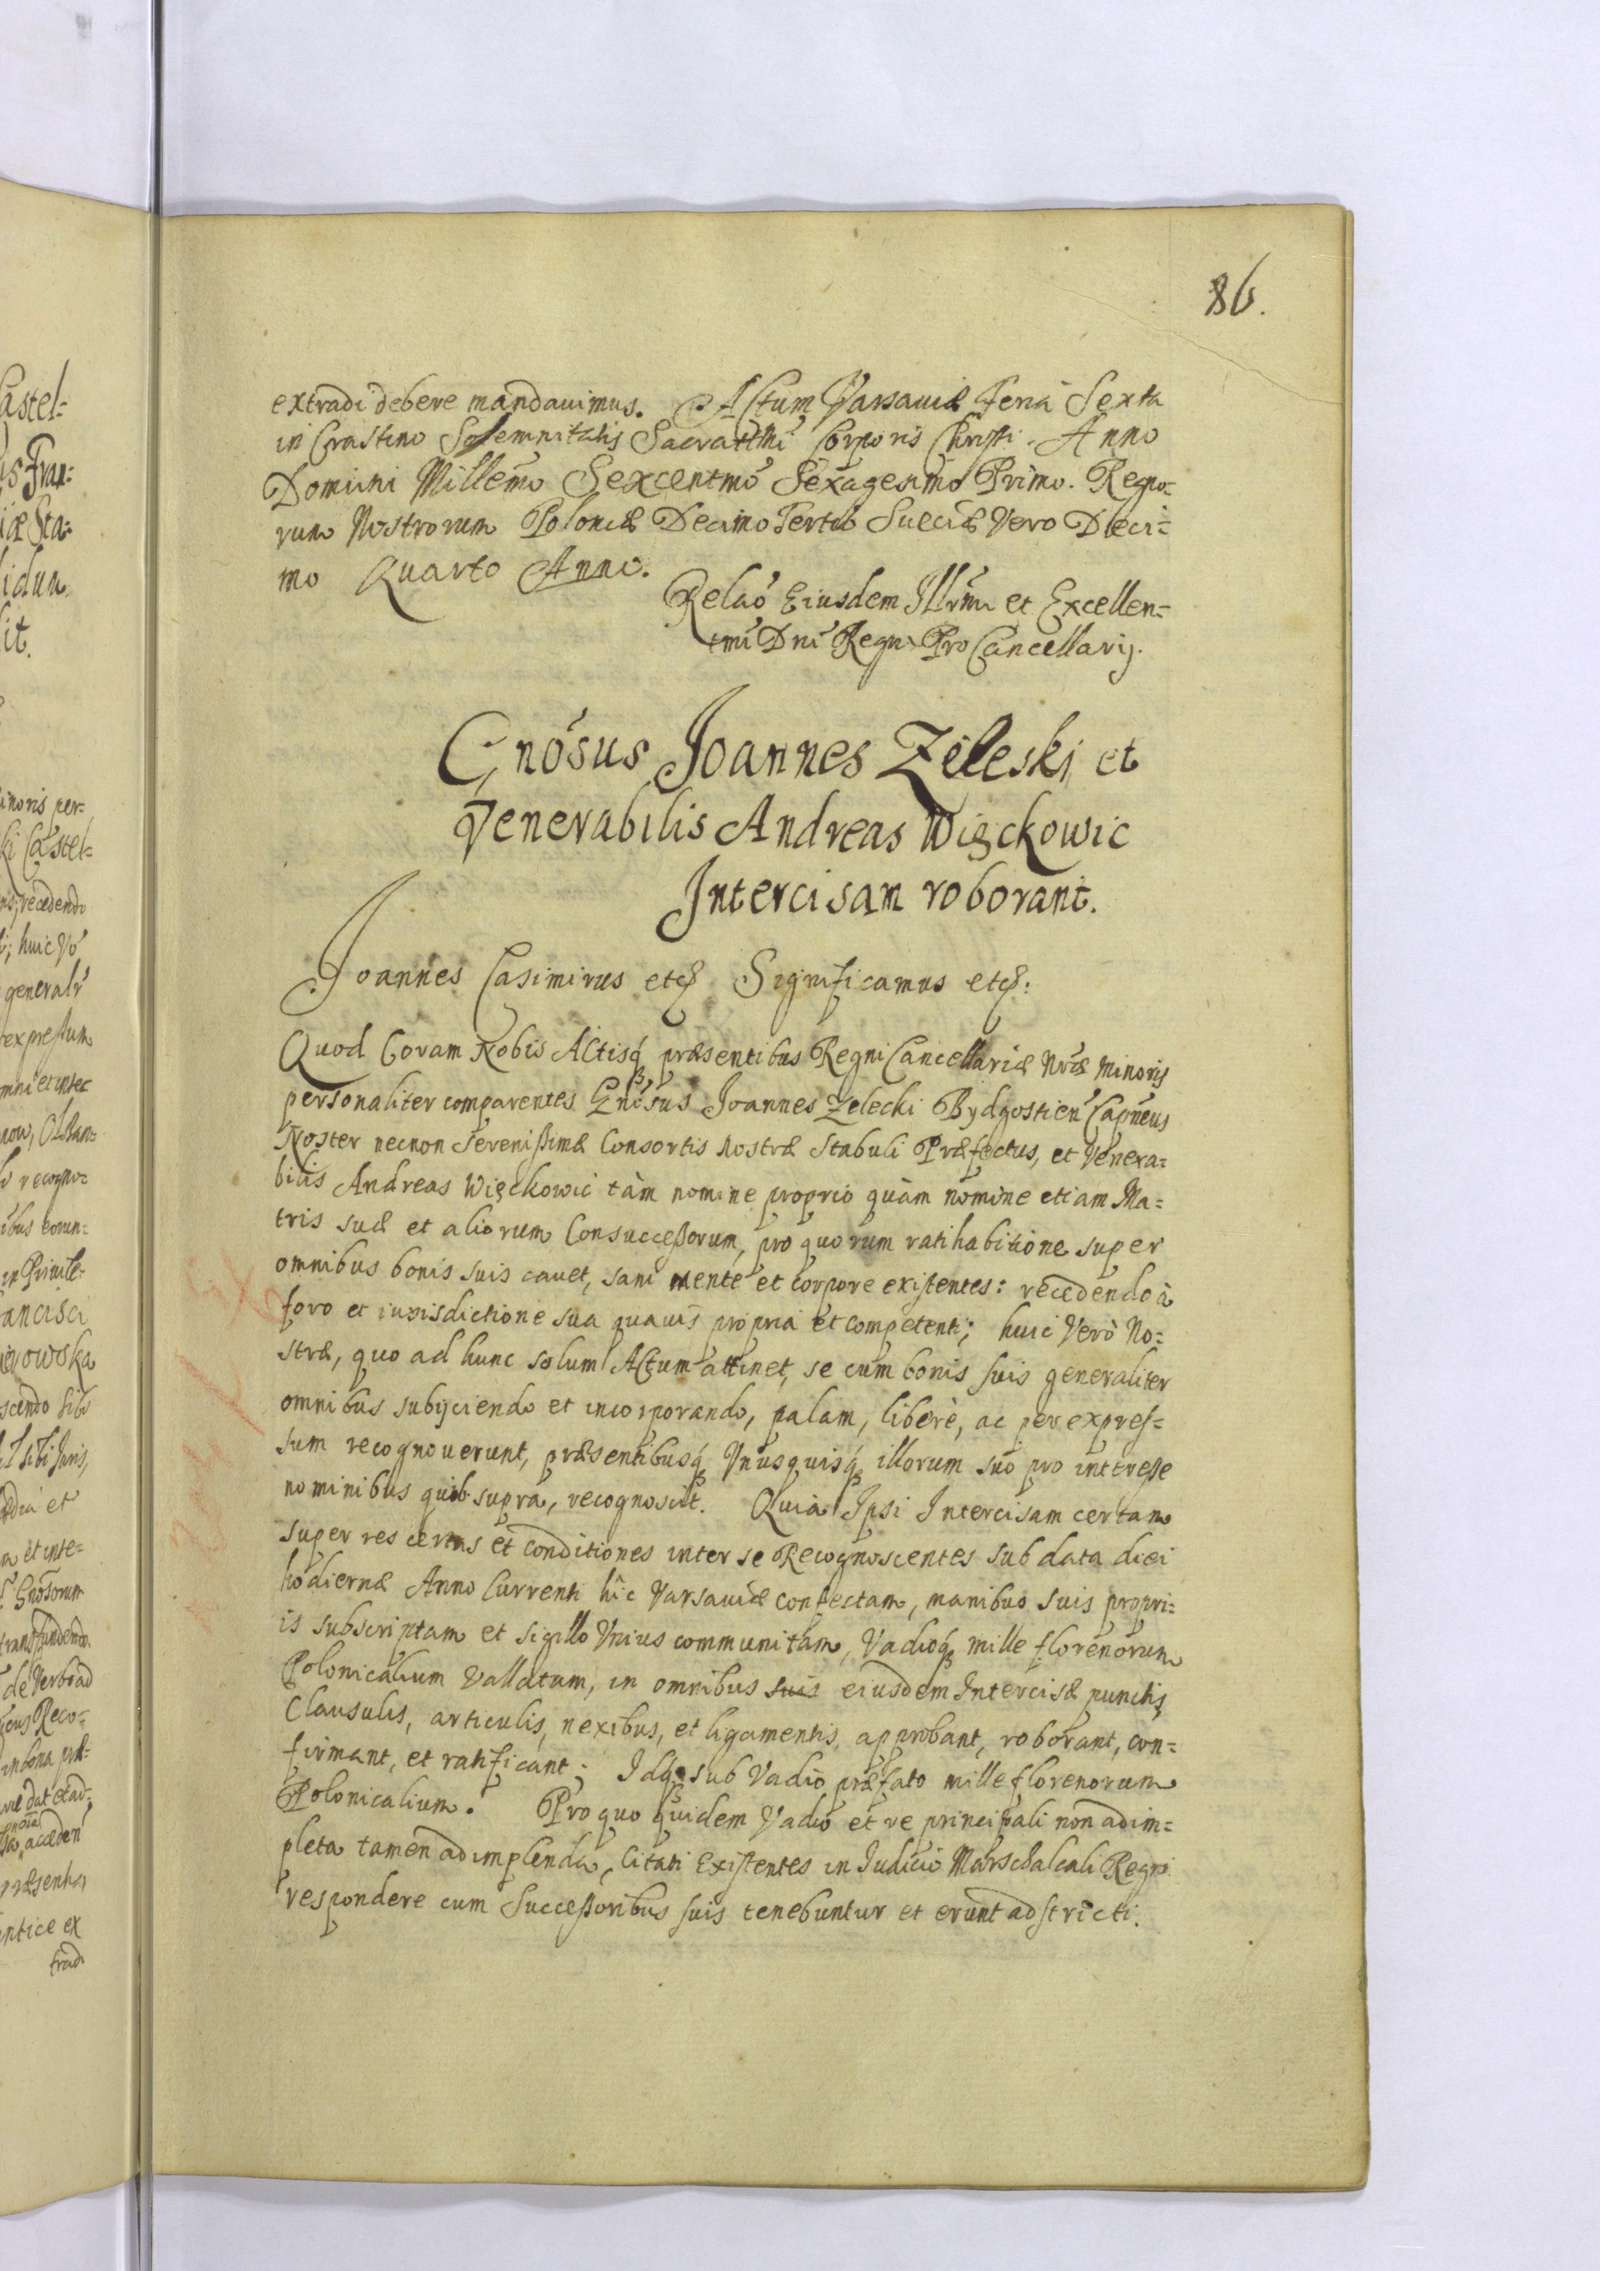 86.
extradi debere mandauimus. Actum Varsauiæ Feria Sexta
in Crastino Solemnitatis Sacrattmi Corporis Christi. Anno
Domini Millemo Sexcentmo Sexagesimo Primo. Regno=
rum Nostrorum Poloniæ Decimo Tertio Sueciæ Vero Deci=
mo Quarto Anno.
Relao Eiusdem Illrmi et Excellen=
tmi Dni Regni ProCancellarij.
Gnosus Joannes Zeleski et
Venerabilis Andreas Więckowic
Intercisam roborant.
Joannes Casimirus etc Significamus etc:
Quod Coram Nobis Actisq præsentibus Regni Cancellariæ Nræ Minoris
personaliter comparentes Gnosus Joannes Zelecki Bydgostien Capneus
Noster necnon Serenissimæ Consortis Nostræ Stabuli Præfectus, et Venera=
bilis Andreas Więckowic tàm nomine proprio quàm nomine etiam Ma=
tris suæ et aliorum Consuccessorum, pro quorum ratihabitione super
omnibus bonis suis cauet, sani mente et corpore existentes: recedendo à
foro et iurisdictione sua quauis propria et competenti; huic Verò No=
stræ, quo ad hunc solum Actum attinet, se cum bonis suis generaliter
omnibus subijciendo et incorporando, palam, liberè, ac per expres=
sum recognouerunt, præsentibusq Vnusquisq illorum suo pro interesse
nominibus quib supra, recognoscit. Quia Ipsi Intercisam certam
super res certas et conditiones inter se Recognoscentes sub data diei
hodiernæ Anno Currenti hic Varsauiæ confectam, manibus suis propri=
is subscriptam et sigillo Vnius communitam, Vadioq mille florenorum
Polonicalium Vallatum, in omnibus suis eiusdem Intercisæ punctis,
Clausulis, articulis, nexibus, et ligamentis, approbant, roborant, con=
firmant, et ratificant; Idq sub Vadio præfato mille florenorum
Polonicalium. Pro quo quidem Vadio et re principali non adim=
pleta tamen adimplenda, Citati Existentes in Iudicio Marschalcali Regni
respondere cum Successoribus suis tenebuntur et erunt adstricti.